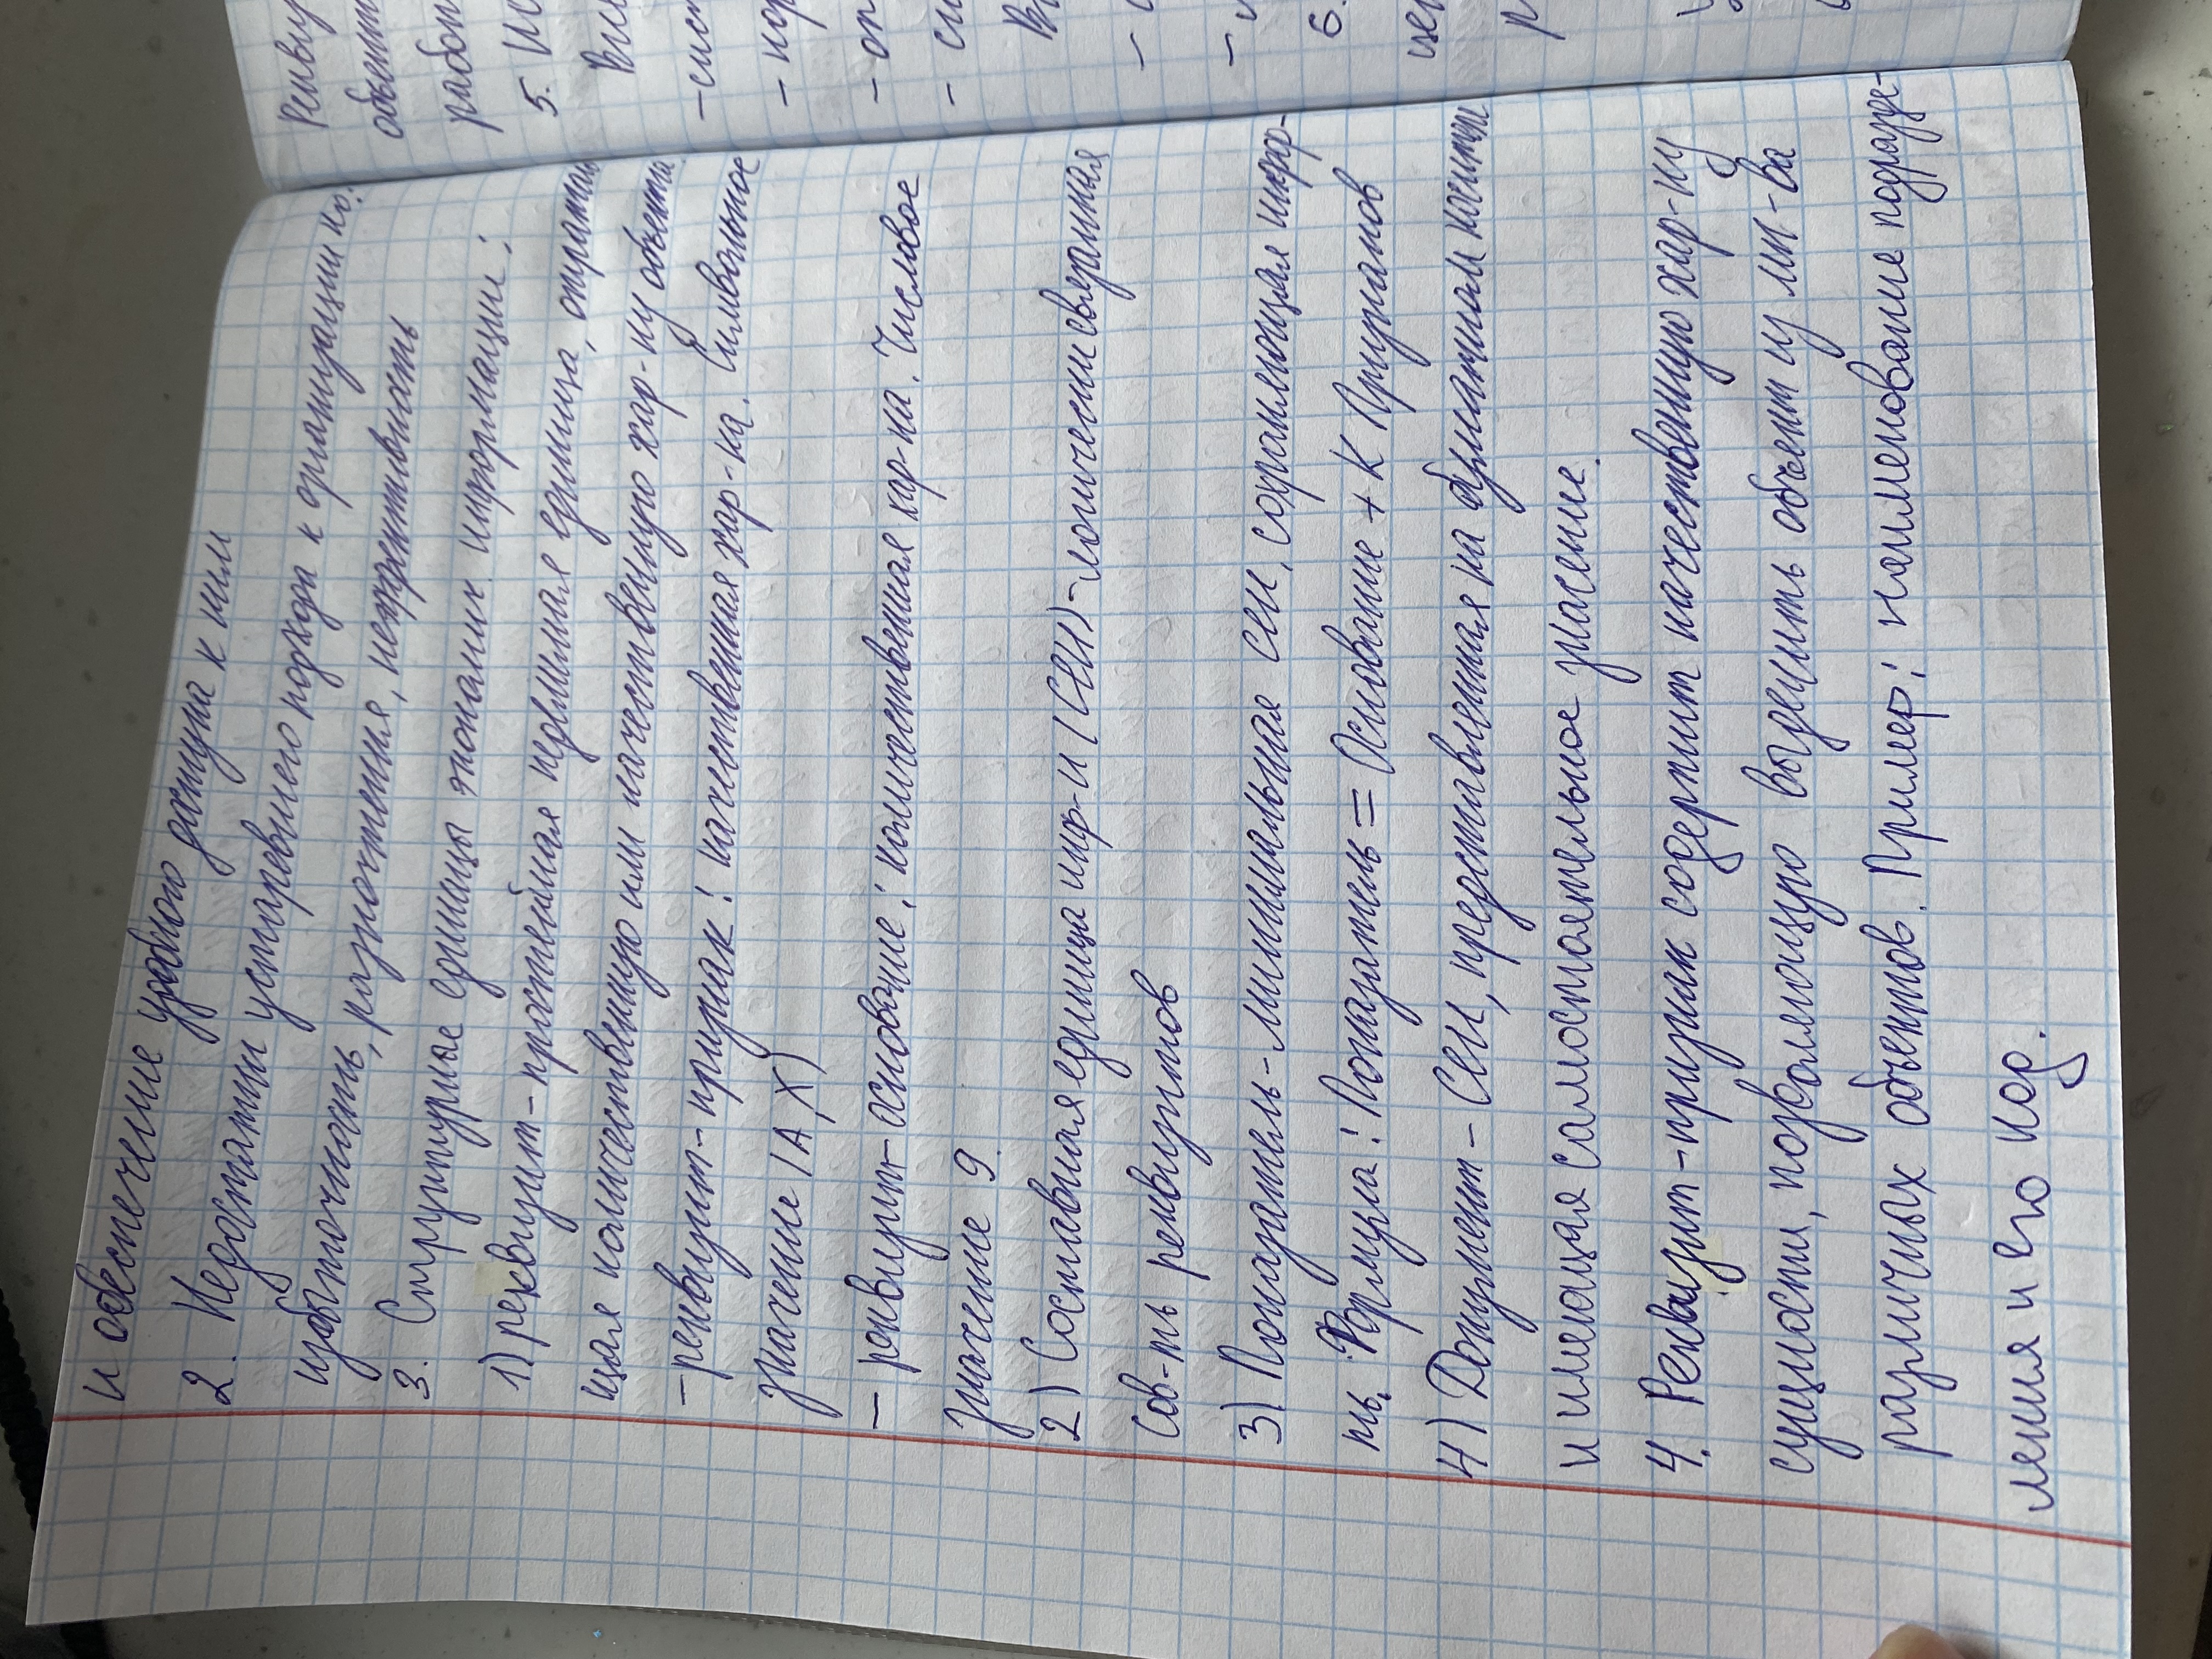 и обеспечение удобного доступа к ним
2. Недостатки устаревшего подхода к организации ио:
избыточность, разночтения, неэффективность
3. Структурные единицы эконамич. информации:
1) реквизит-простейшая неделимая единица, отража
щая количественную или качественную хар-ку объекта
-реквизит-признак: качественная хар-ка. Символьное
значение (А, Х)
- реквизит-основание: количественная хар-ка. Числовое
значение 9.
2) Составная единица инф-и (СЕИ)-логически связанная
сов-ть реквизитов
3) Показатель-минимальная сеи, сохраняющая инфор-
ть. Формула: Показатель = Основание + К Признаков
4) Документ - СЕИ, представленная на бумажном носители
и имеющая самостоятельное значение.
4. Реквазит-признак содержит качественную хар-ку
сущности, позволяющую выделить объект из мн-ва
различных объектов. Пример: наименование подразде-
ления и его код.
Реквизи
объект
работ
5. Ис
Вне
-сист
- нор
- оп
- си
В
-
-
6.
цен
р